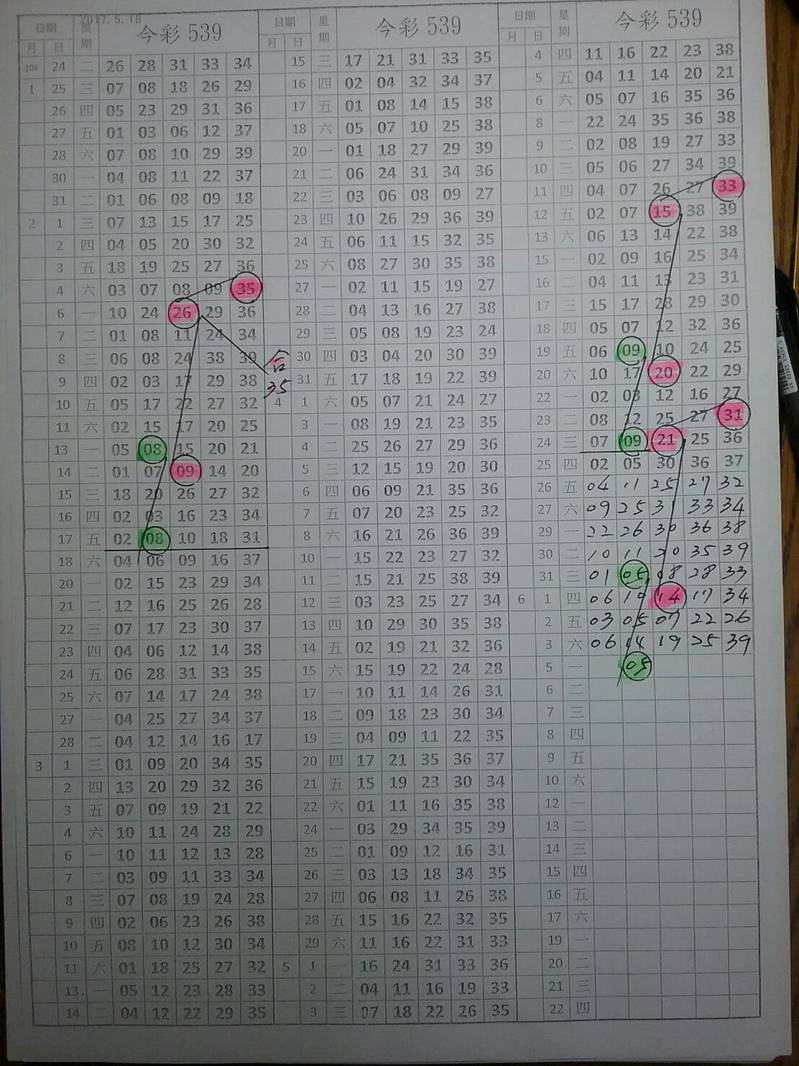 2017.5.18
日期 星期 今彩539
月 日
106 24 二 26 28 31 33 34
1 25 三 07 08 18 26 29
26 四 05 23 29 31 36
27 五 01 03 06 12 37
28 六 07 08 10 29 39
30 一 04 08 11 22 37
31 二 01 06 08 09 18
2 1 三 07 13 15 17 25
2 四 04 05 20 30 32
3 五 18 19 25 27 36
4 六 03 07 08 09 35
6 一 10 24 26 29 36
7 二 01 08 11 24 34
8 三 06 08 24 38 39
9 四 02 03 17 29 38
10 五 05 17 22 27 32
11 六 02 15 17 20 25
13 一 05 08 15 20 21
14 二 01 07 09 14 20
15 三 18 20 26 27 32
16 四 02 03 16 23 34
17 五 02 08 10 18 31
18 六 04 06 09 16 37
20 一 02 15 23 29 34
21 二 12 16 25 26 28
22 三 07 17 23 30 37
23 四 04 06 12 14 38
24 五 06 28 31 33 35
25 六 07 14 17 24 38
27 一 04 25 27 34 37
28 二 04 12 14 16 17
3 1 三 01 09 20 34 35
2 四 13 20 29 32 36
3 五 07 09 19 21 22
4 六 10 11 24 28 29
6 一 10 11 12 13 28
7 二 03 09 11 33 34
8 三 07 08 19 24 28
9 四 02 06 23 26 38
10 五 08 10 12 30 34
11 六 01 18 25 27 32
13 一 05 12 23 28 33
14 二 04 12 22 29 35
合
35
日期 星期 今彩539
月 日
15 三 17 21 31 33 35
16 四 02 04 32 34 37
17 五 01 08 14 15 38
18 六 05 07 10 25 38
20 一 01 18 27 29 39
21 二 06 24 31 34 36
22 三 03 06 08 09 27
23 四 10 26 29 36 39
24 五 06 11 15 32 35
25 六 08 27 30 35 38
27 一 02 11 15 19 27
28 二 04 13 16 27 38
29 三 05 08 19 23 24
30 四 03 04 20 30 39
31 五 17 18 19 22 39
4 1 六 05 07 21 24 27
3 一 08 19 21 23 35
4 二 25 26 27 29 36
5 三 12 15 19 20 30
6 四 06 09 21 35 36
7 五 07 20 23 25 32
8 六 16 21 26 36 39
10 一 15 22 23 27 32
11 二 15 21 25 38 39
12 三 03 23 25 27 34
13 四 10 29 30 35 38
14 五 02 19 21 32 36
15 六 15 19 22 24 28
17 一 10 11 14 26 31
18 二 09 18 23 30 34
19 三 04 09 11 22 35
20 四 17 21 35 36 37
21 五 15 19 23 30 34
22 六 01 11 16 35 38
24 一 03 29 34 35 39
25 二 01 09 12 16 31
26 三 03 13 18 34 35
27 四 06 08 11 26 38
28 五 15 16 22 32 35
29 六 11 16 22 31 33
5 1 一 16 24 31 33 36
2 二 04 11 16 19 33
3 三 07 18 22 26 35
日期 星期 今彩539
月 日
4 四 11 16 22 23 38
5 五 04 11 14 20 21
6 六 05 07 16 35 36
8 一 22 24 35 36 38
9 二 02 08 19 27 33
10 三 05 06 27 34 39
11 四 04 07 26 27 33
12 五 02 07 15 38 39
13 六 06 13 14 22 38
15 一 02 09 16 25 34
16 二 04 11 13 23 31
17 三 15 17 28 29 30
18 四 05 07 12 32 36
19 五 06 09 10 24 25
20 六 10 17 20 22 29
22 一 02 08 12 16 27
23 二 08 12 25 27 31
24 三 07 09 21 25 36
25 四 02 05 30 36 37
26 五 04 11 25 27 32
27 六 09 25 31 33 34
29 一 22 26 30 36 38
30 二 10 11 20 35 39
31 三 01 05 08 28 33
6 1 四 06 10 14 17 34
2 五 03 05 07 22 26
3 六 06 14 19 25 39
5 一 05
6 二
7 三
8 四
9 五
10 六
12 一
13 二
14 三
15 四
16 五
17 六
19 一
20 二
21 三
22 四